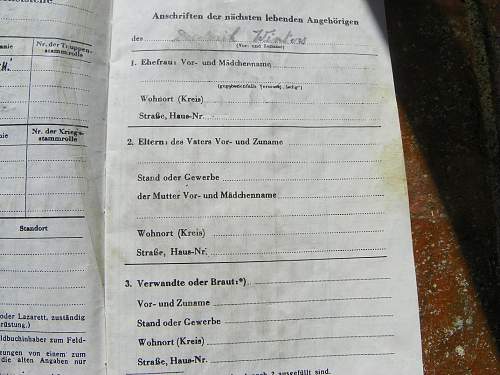 Nr. der Truppen-
stammrolle
Nr. der Kriegs-
stammrolle
Standort
oder Lazarett, zuständig
rüstung.)
ldbuchinhaber zum Feld-
zungen von einem zum
die alten Angaben nur
Anschriften der nächsten lebenden Angehörigen
des
(Vor- und Zuname)
1. Ehefrau: Vor- und Mädchenname
Wohnort (Kreis)
Straße, Haus-Nr.
2. Eltern: des Vaters Vor- und Zuname
Stand oder Gewerbe
der Mutter Vor- und Mädchenname
Wohnort (Kreis)
Straße, Haus-Nr.
3. Verwandte oder Braut:*)
Vor- und Zuname
Stand oder Gewerbe
Wohnort (Kreis)
Straße, Haus-Nr.
2 ausgefüllt sind.